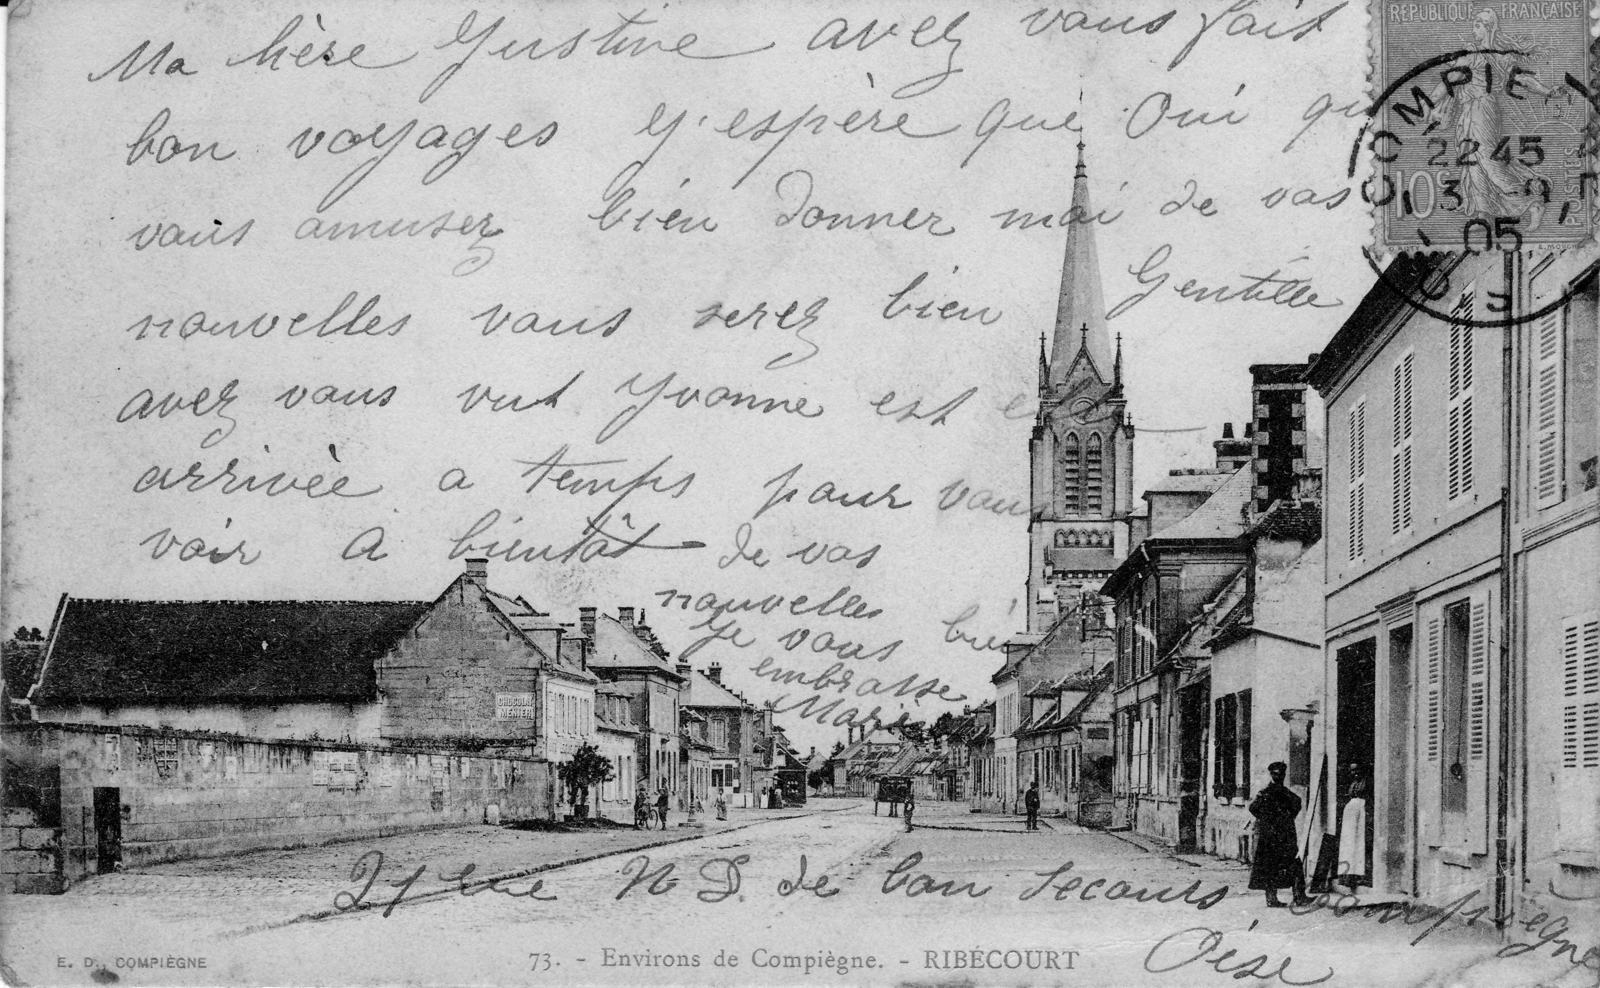 Ma hère Justine avez vous fait
bon voyages y. espère que Oui qu
vous amusez bien donner moi de vos
nouvelles vous serez bien Gentille
avez vous vut Yvonne est elle
arrivèe a temps pour vous
voir A bientôt de vos
nouvelles
Je vous bien
embrasse
Marie
21 rue N D. de bon Secours, Compiegne
Oise
RÉPUBLIQUE FRANÇAISE
10c POSTES
COMPIEGNE
22 45
3 -9
05
CHOCOLAT
MENIER
E. D., COMPIÈGNE
73. - Environs de Compiègne. - RIBÉCOURT